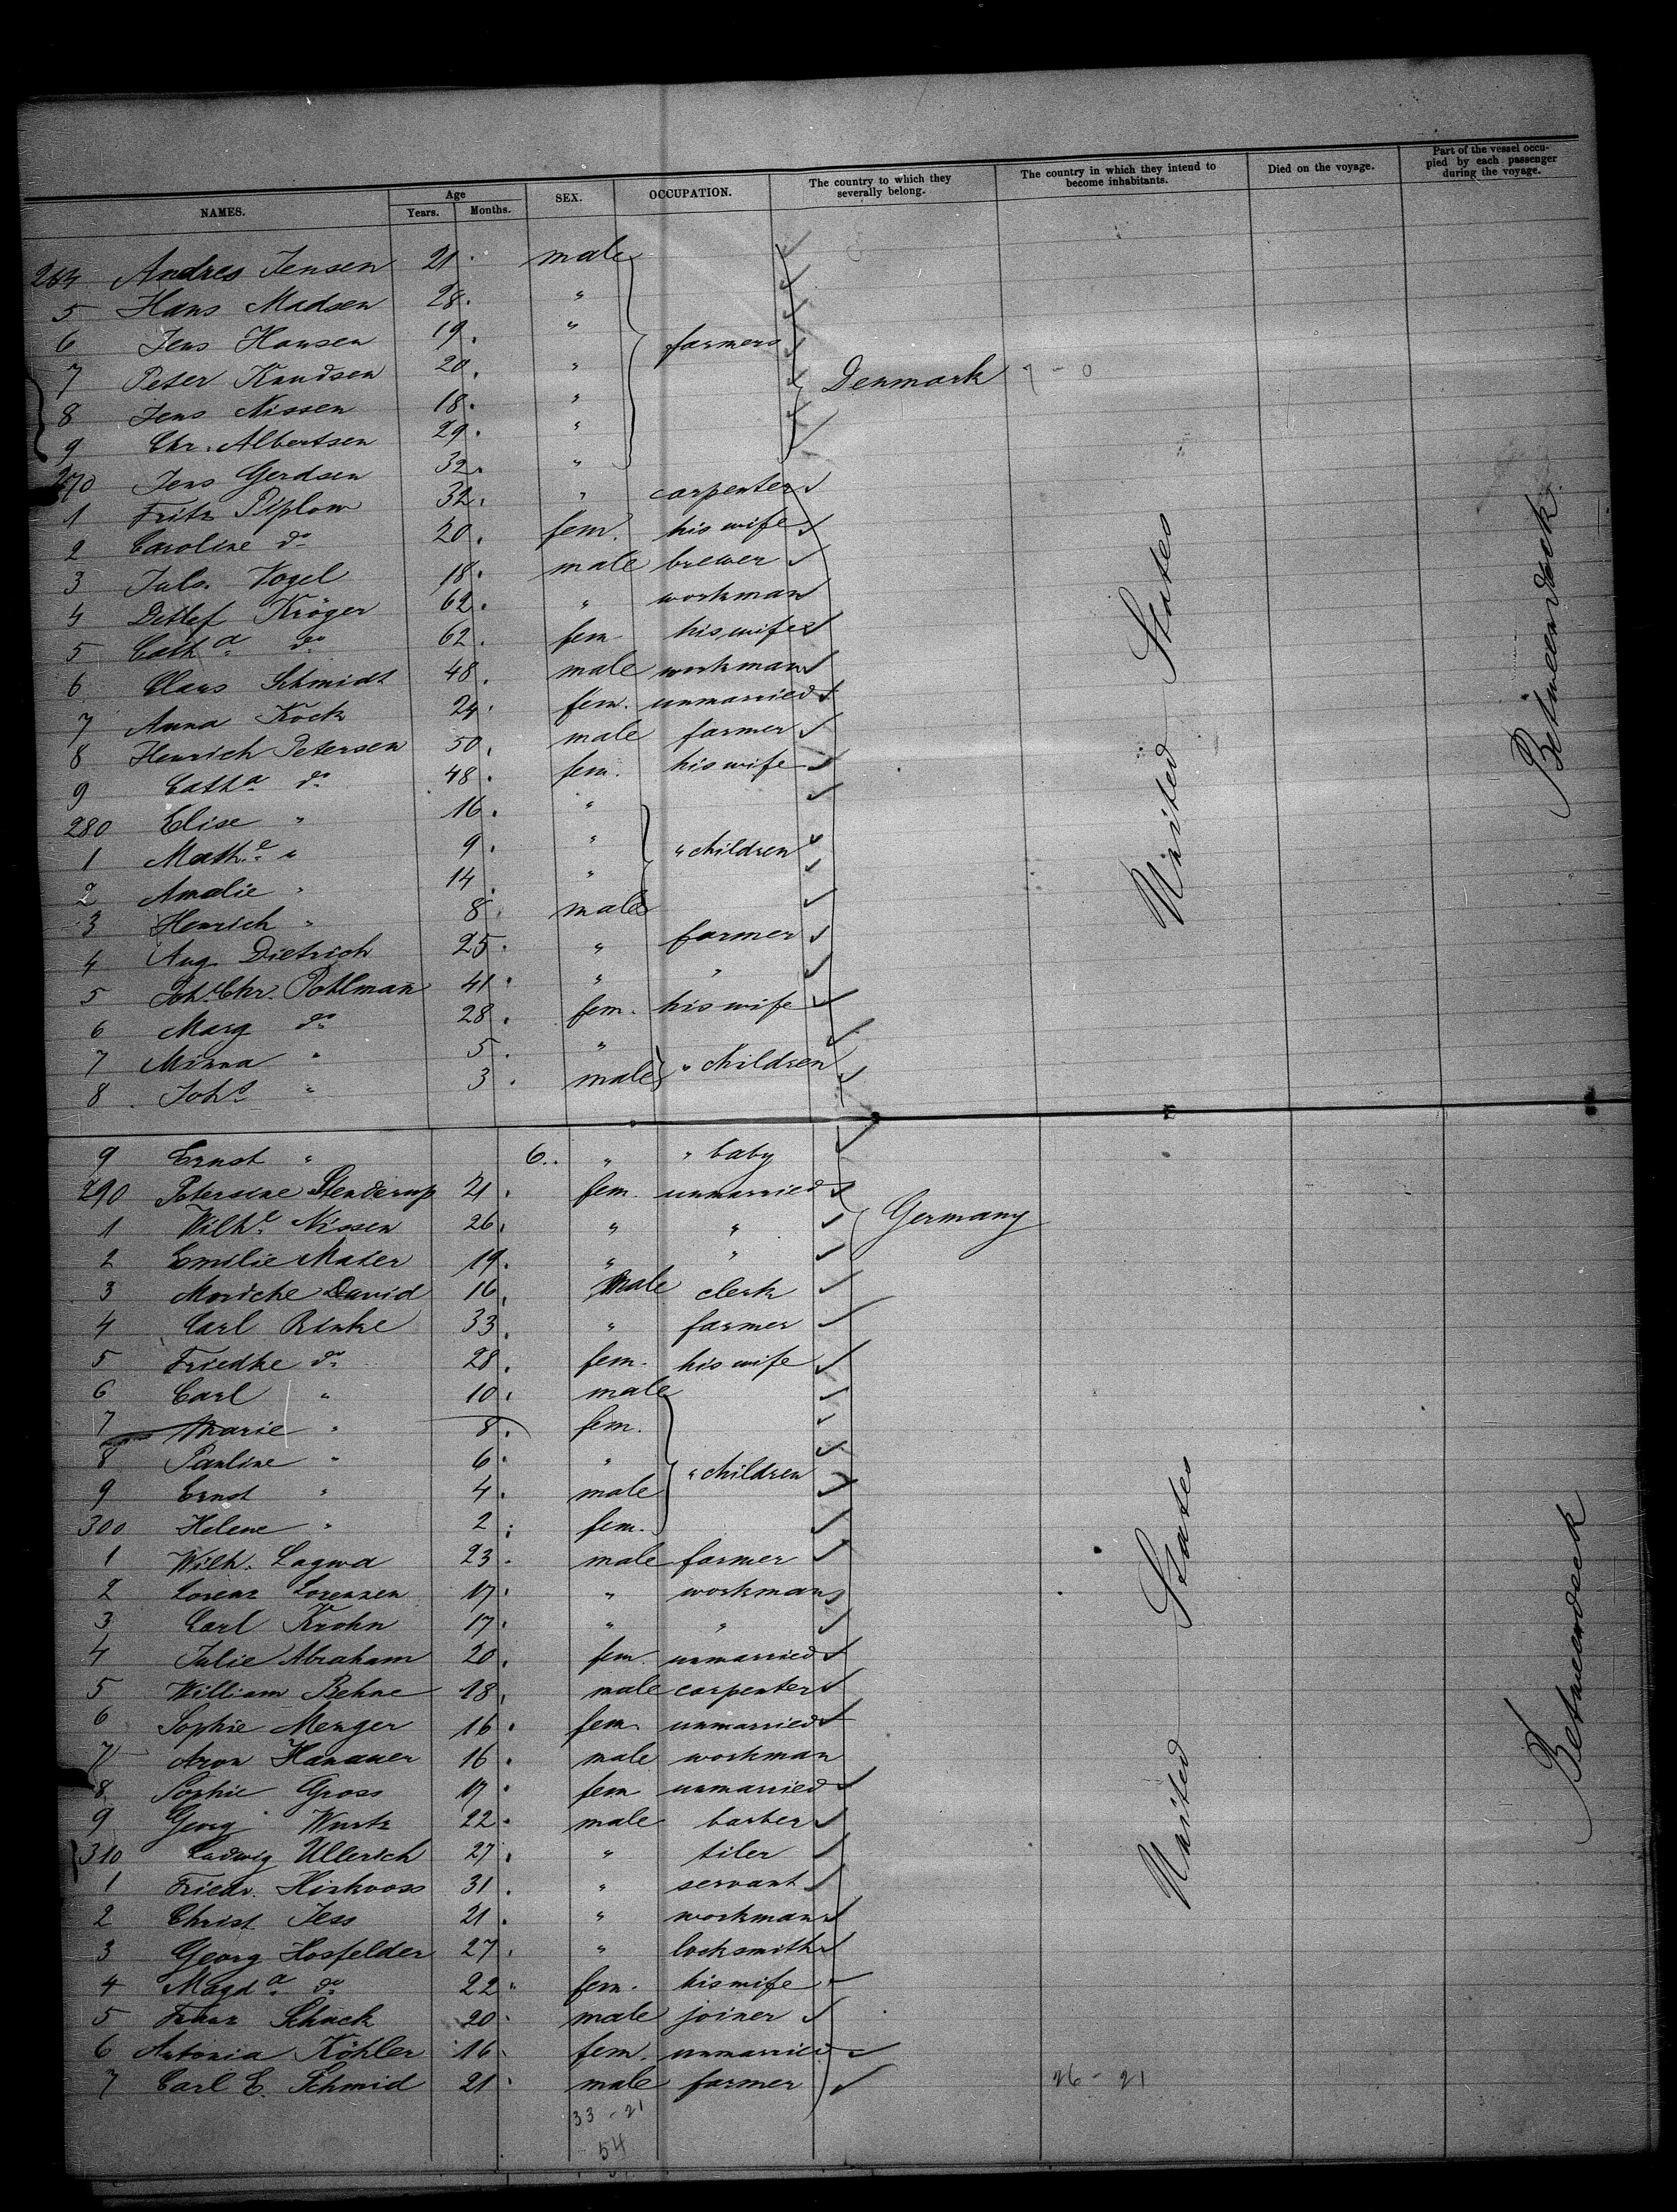 NAMES. Age Years. Months. SEX. OCCUPATION. The country to which they severally belong. The country in which they intend to become inhabitants. Died on the voyage. Part of the vessel occupied by each passenger during the voyage.
264 Andres Jensen 21 male
5 Hans Madsen 28 "
6 Jens Hansen 19 " farmers
7 Peter Knudsen 20 " Denmark 7 - 0
8 Jens Nissen 18 "
9 Chr. Albertsen 29 "
270 Jens Gerdsen 32 "
1 Fritz Piplow 32 " carpenter
2 Caroline do 20 fem. his wife
3 Juls. Vogel 18 male brewer
4 Detlef Kröger 62 " workman
5 Catha do 62 fem his wife
6 Claus Schmidt 48 male workman
7 Anna Kock 24 fem. unmarried
8 Henrich Petersen 50 male farmer
9 Catha do 48 fem. his wife
280 Elise " 16 "
1 Mathe " 9 " " children
2 Amalie " 14 "
3 Henrich " 8 male
4 Aug Dietrich 25 " farmer
5 Johs Chr. Pohlman 41 " "
6 Marg do 28 fem. his wife
7 Minna " 5 "
8 Johs " 3 male " children
United States
Betweendeck
9 Ernst " 6 " " baby
290 Petersine Stenderup 21 fem. unmarried
1 Wilhe Nissen 26 " " Germany
2 Emilie Mater 19 " "
3 Moriche David 16 male clerk
4 Carl Rinke 33 " farmer
5 Friedke do 28 fem. his wife
6 Carl " 10 male
7 Marie " 8 fem.
8 Pauline " 6 "
9 Ernst " 4 male " children
300 Helene " 2 fem.
1 Wilh. Lagwa 23 male farmer
2 Lorenz Lorenzen 17 " workman
3 Carl Krohn 17 " "
4 Julie Abraham 20 fem unmarried
5 William Behne 18 male carpenter
6 Sophie Menger 16 fem. unmarried
7 Aron Hanauer 16 male workman
8 Sophie Gross 17 fem unmarried
9 Georg Wurtz 22 male barber
310 Ludwig Ullerich 27 " tiler
1 Friedr. Hirkvoss 31 " servant
2 Christ Jess 21 " workman
3 Georg Hosfelder 27 " locksmith
4 Magda do 22 fem. his wife
5 Franz Schack 20 male joiner
6 Antonia Köhler 16 fem. unmarried
7 Carl E. Schmid 21 male farmer
United States
Betweendeck
26 - 21
33 - 21
54